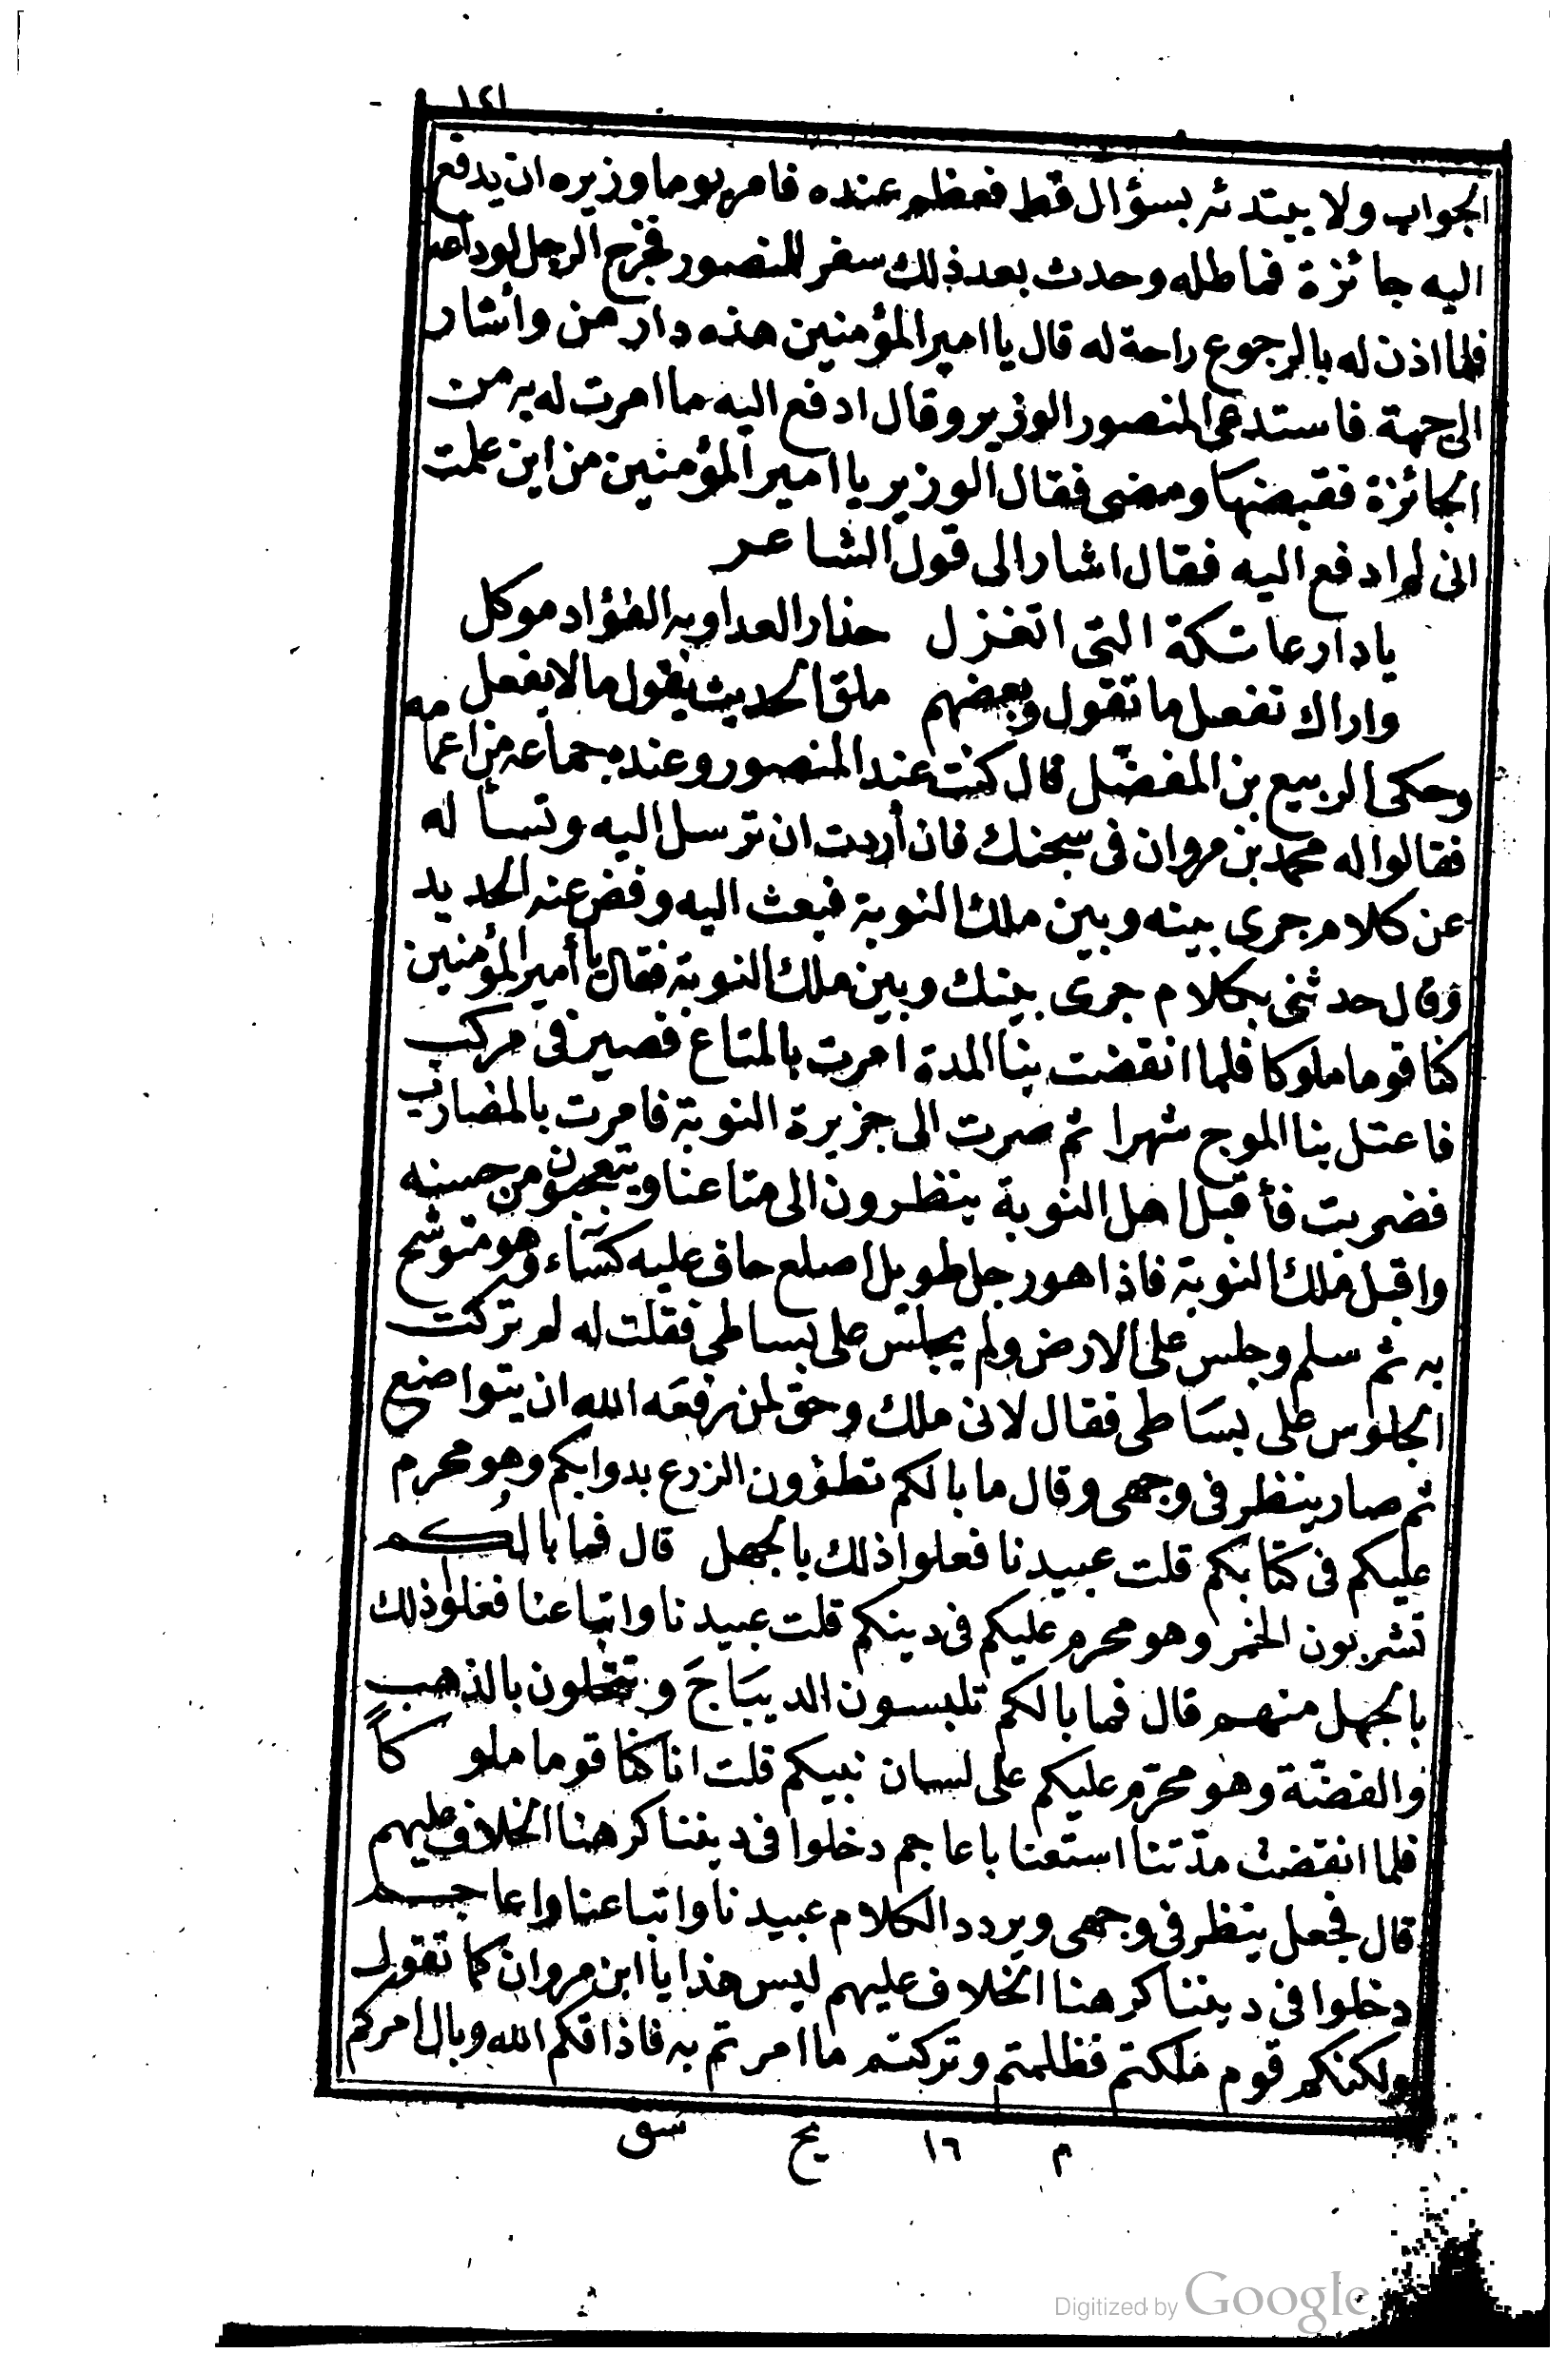 ١٤١
الجواب ولا يبتدئه بسؤال قط فعظم عنده فامر يوما وزيره ان يدفع
اليه جائزة فماطله وحدث بعد ذلك سفر للمنصور فخرج الرجل لوداعه
فلما اذن له بالرجوع راحة له قال يا امير المؤمنين هذه دار من وأشار
الى جهة فاستدعى المنصور الوزير وقال ادفع اليه ما امرت له به من
الجائزة فقبضها ومضى فقال الوزير يا امير المؤمنين من اين علمت
انى لم ادفع اليه فقال اشار الى قول الشاعر
يا دار عاتكة التى اتغزل حذار العدا وبه الفؤاد موكل
واراك تفعل ما تقول وبعضهم ملق الحديث يقول ما لا يفعل
وحكى الربيع بن المفضّل قال كنت عند المنصور وعنده جماعة من اعمامه
فقالوا له محمد بن مروان فى سجنك فان أردت ان ترسل اليه وتسأله
عن كلام جرى بينه وبين ملك النوبة فبعث اليه وفض عنه الحديد
وقال حدثنى بكلام جرى بينك وبين ملك النوبة فقال يا أمير المؤمنين
كنا قوما ملوكا فلما انقضت بنا المدة امرت بالمتاع فصير فى مركب
فاعتل بنا الموج شهرا ثم صرت الى جزيرة النوبة فامرت بالمضارب
فضربت فأقبل اهل النوبة ينظرون الى متاعنا ويتعجبون من حسنه
واقبل ملك النوبة فاذا هو رجل طويل اصلع حاف عليه كسآء وهو متوشح
به ثم سلم وجلس على الارض ولم يجلس على بساطى فقلت له لم تركت
الجلوس على بسَاطى فقال لانى ملك وحق لمن رفعَه الله ان يتواضع
ثم صار ينظر فى وجهى وقال ما بالكم تطؤون الزرع بدوابكم وهو محرم
عليكم فى كتابكم قلت عبيدنا فعلوا ذلك بالجهل قال فما بالكم
تشربون الخمر وهو محرم عليكم فى دينكم قلت عبيدنا واتباعنا فعلوا ذلك
بالجهل منهم قال فما بالكم تلبسون الديبَاجَ وتتحلون بالذهب
والفضّة وهو محرّم عليكم على لسان نبيكم قلت انا كنا قوما ملوكاً
فلما انقضت مدّتنا استعنا باعاجم دخلوا فى ديننا كرهنا الخلاف عليهم
قال فجعل ينظر فى وجهى ويردد الكلام عبيدنا واتباعنا واعاجم
دخلوا فى ديننا كرهنا الخلاف عليهم ليس هذا يا ابن مروان كما تقول
ولكنكم قوم ملكتم فظلمتم وتركتم ما امرتم به فاذاقكم الله وبال امركم
م ١٦ يح سق
Digitized by Google